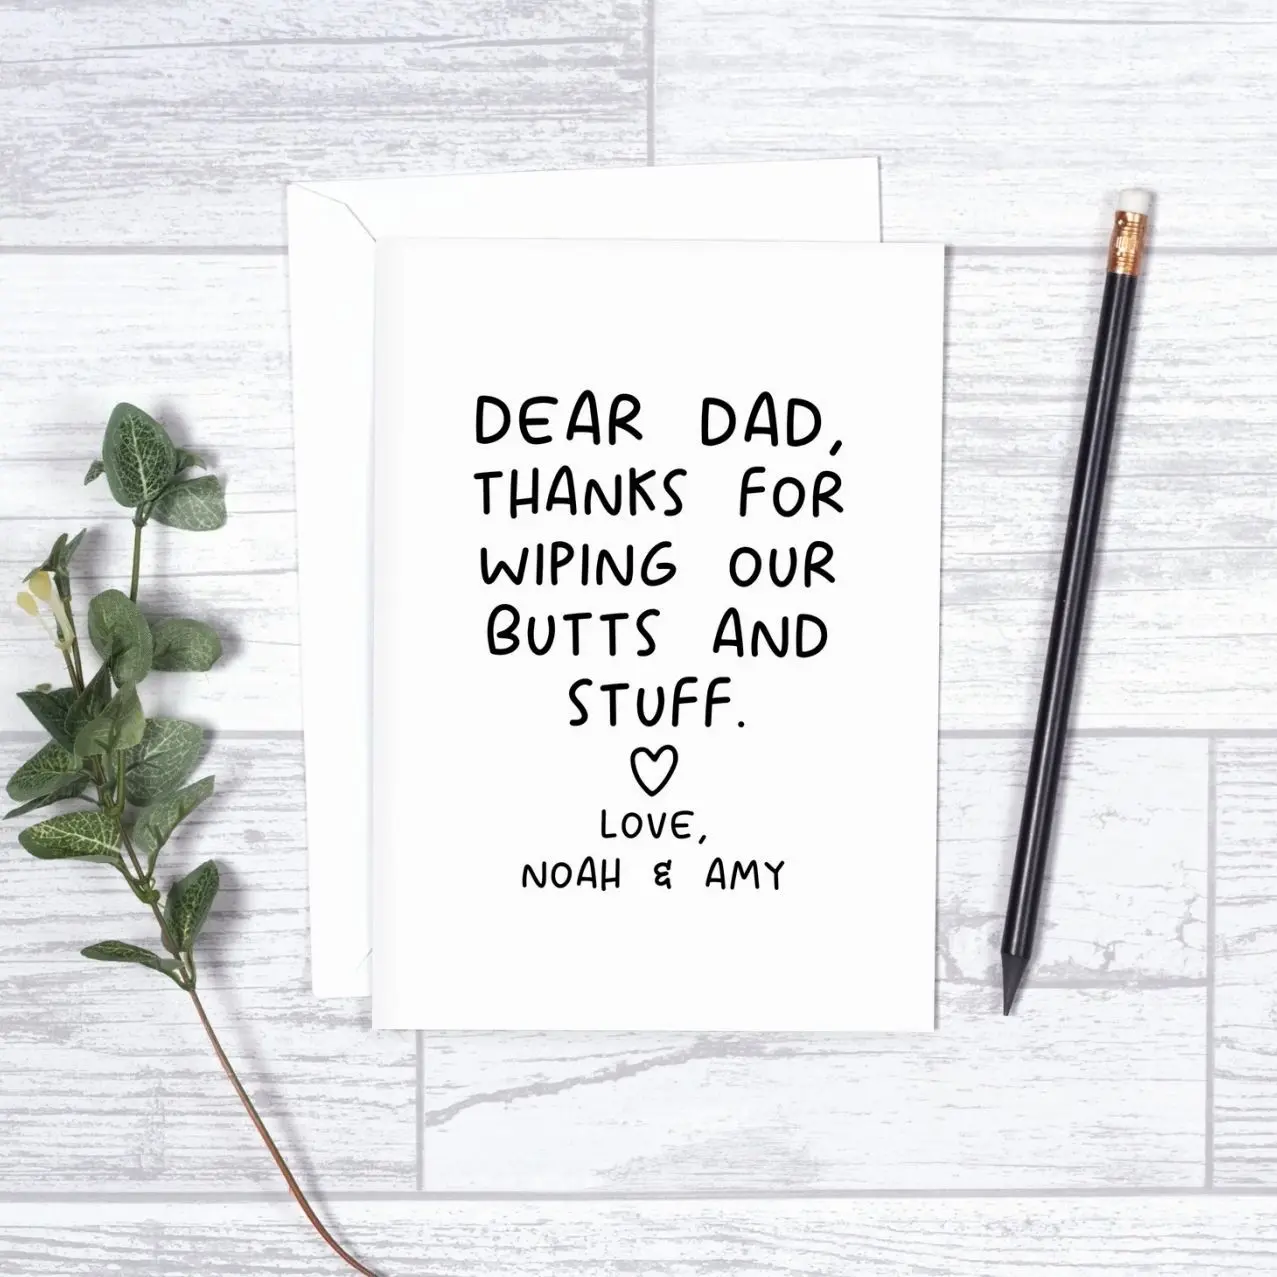 DEAR DAD,
THANKS FOR
WIPING OUR
BUTTS AND
STUFF.
LOVE,
NOAH & AMY